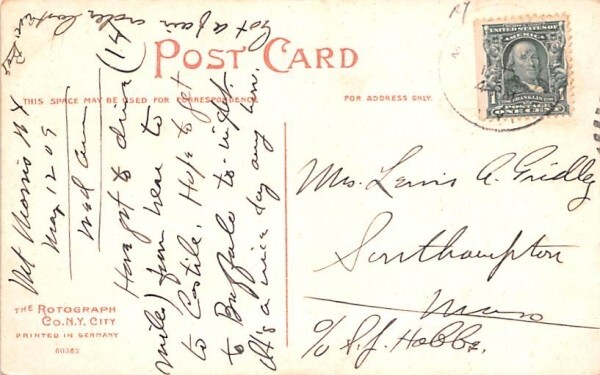 POST CARD
THIS SPACE MAY BE USED FOR CORRESPONDENCE
FOR ADDRESS ONLY.
UNITED STATES OF AMERICA
FRANKLIN
POSTAGE
ONE CENT
Mt Morris N Y
May 12 09
Wed am
Have got to drive (14
miles) from here to
to Castile. Hope to get
to Buffalo to-night.
It's a nice day any how.
Got a fair order last
Mrs. Lewis A. Gridley
Southampton
Mass
c/o S. J. Hobbs.
THE ROTOGRAPH
CO. N.Y. CITY
PRINTED IN GERMANY